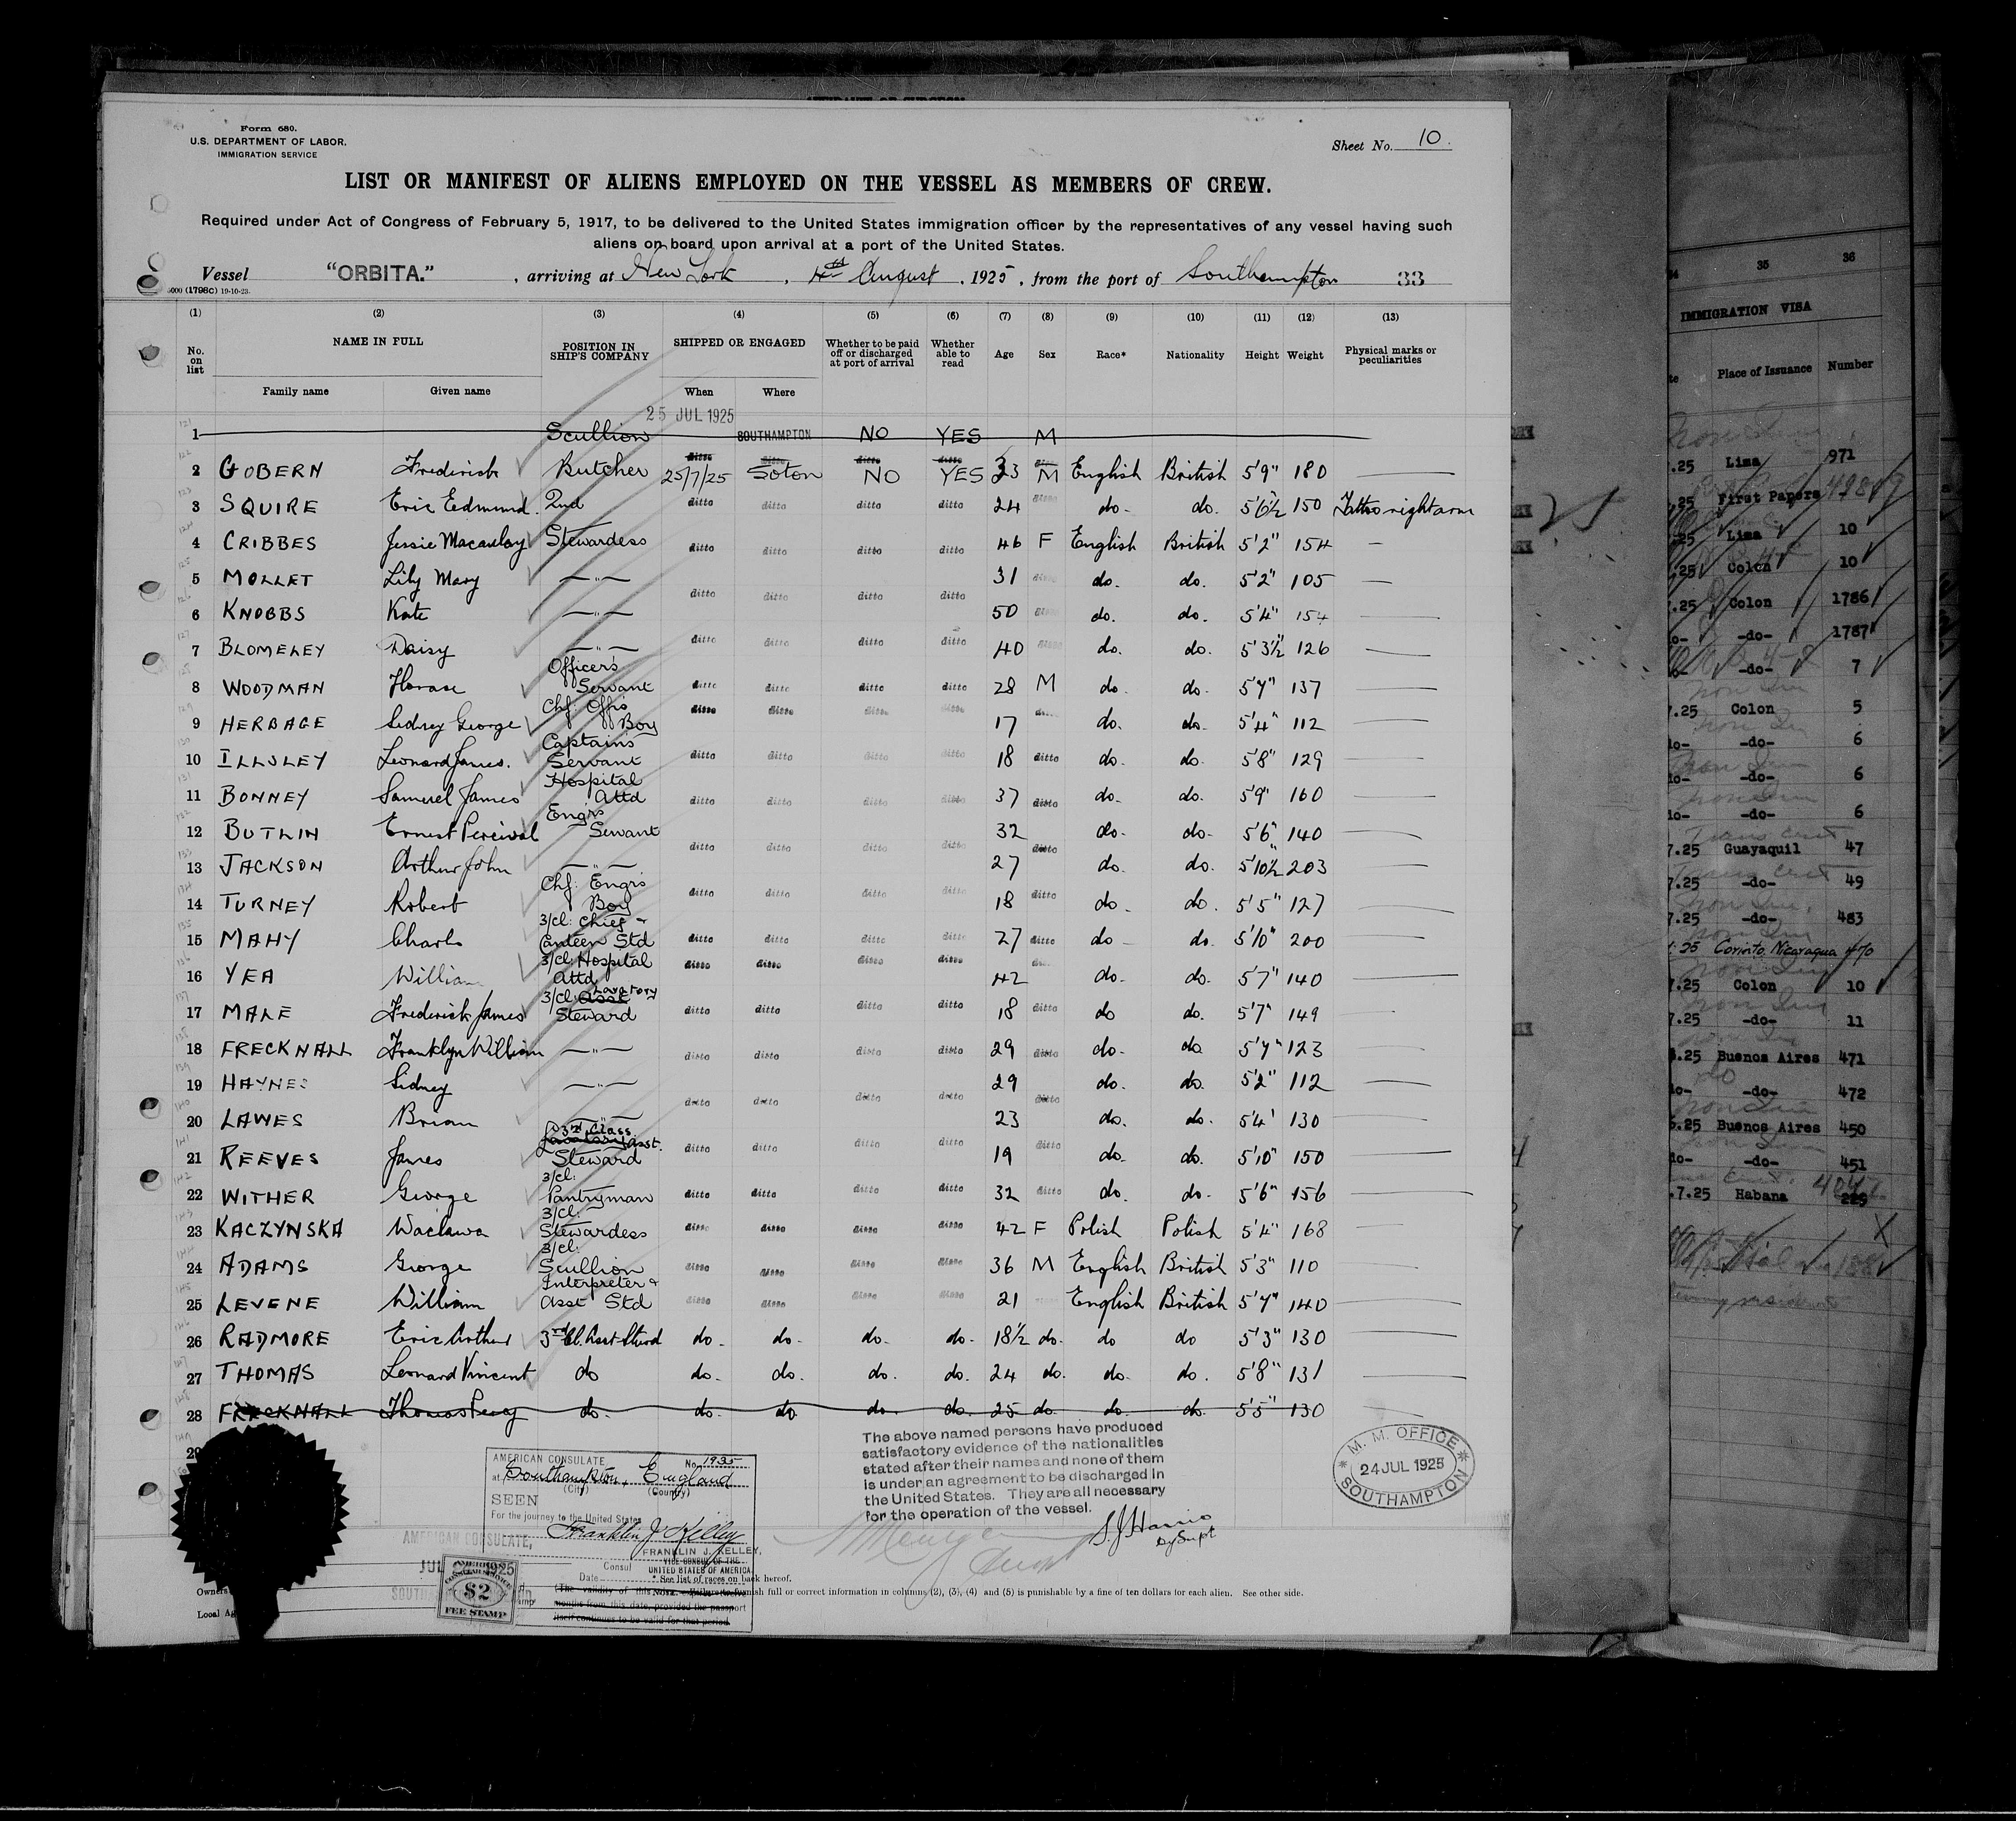 Form 680.
U.S. DEPARTMENT OF LABOR.
IMMIGRATION SERVICE
Sheet No. 10.
LIST OR MANIFEST OF ALIENS EMPLOYED ON THE VESSEL AS MEMBERS OF CREW.
Required under Act of Congress of February 5, 1917, to be delivered to the United States immigration officer by the representatives of any vessel having such
aliens on board upon arrival at a port of the United States.
Vessel "ORBITA." , arriving at New York , 4th August , 1925 , from the port of Southampton 33
(1798c) 19-10-23.
(1) (2) (3) (4) (5) (6) (7) (8) (9) (10) (11) (12) (13)
No. on list NAME IN FULL POSITION IN SHIP'S COMPANY SHIPPED OR ENGAGED Whether to be paid off or discharged at port of arrival Whether able to read Age Sex Race* Nationality Height Weight Physical marks or peculiarities
Family name Given name When Where
25 JUL 1925
1 Scullion SOUTHAMPTON NO YES M
2 GOBERN Frederick Butcher 25/7/25 Soton NO YES 33 M English British 5'9" 180
3 SQUIRE Eric Edmund. 2nd ditto ditto ditto ditto 24 do. do. 5'6½ 150 Tattoo right arm
4 CRIBBES Jessie Macaulay Stewardess ditto ditto ditto ditto 46 F English British 5'2" 154
5 MOLLET Lily Mary —"— 31 do. do. 5'2" 105
6 KNOBBS Kate —"— ditto ditto ditto ditto 50 do. do. 5'4" 154
7 BLOMELEY Daisy —"— ditto ditto ditto ditto 40 do. do. 5'3½ 126
8 WOODMAN Horase Officer's Servant ditto ditto ditto ditto 28 M do. do. 5'7" 137
9 HERBAGE Sidney George Chf: Offrs Boy ditto ditto ditto ditto 17 do. do. 5'4" 112
10 ILLSLEY Leonard James. Captain's Servant ditto ditto ditto ditto 18 ditto do. do. 5'8" 129
11 BONNEY Samuel James Hospital Attd ditto ditto ditto ditto 37 ditto do. do. 5'9" 160
12 BUTLIN Ernest Percival Engrs Servant 32 do. do. 5'6" 140
13 JACKSON Arthur John —"— ditto ditto ditto ditto 27 ditto do. do. 5'10½ 203
14 TURNEY Robert Chf: Engrs Boy ditto ditto ditto ditto 18 ditto do. do. 5'5" 127
15 MAHY Charls 3/cl: Chief + Canteen Std ditto ditto ditto ditto 27 ditto do do. 5'10" 200
16 YEA William 3/cl: Hospital Attd ditto ditto ditto ditto 42 do. do. 5'7" 140
17 MALE Frederick James 3/cl: Asst Lavatory Steward ditto ditto ditto ditto 18 ditto do do. 5'7" 149
18 FRECKNALL Franklyn William —"— ditto ditto ditto ditto 29 ditto do. do 5'7" 123
19 HAYNES Sidney —"— 29 do. do. 5'2" 112
20 LAWES Brian —"— ditto ditto ditto ditto 23 ditto do. do. 5'4' 130
21 REEVES James 3rd Class Lavatory asst. Steward ditto ditto ditto ditto 19 ditto do. do. 5'10" 150
22 WITHER George 3/cl: Pantryman ditto ditto ditto ditto 32 ditto do. do. 5'6" 156
23 KACZYNSKA Waclawa 3/cl: Stewardess ditto ditto ditto ditto 42 F Polish Polish 5'4" 168
24 ADAMS George 3/cl: Scullion ditto ditto ditto ditto 36 M English British 5'3" 110
25 LEVENE William Interpreter + Asst Std ditto ditto ditto ditto 21 English British 5'7" 140
26 RADMORE Eric Arthur 3rd Cl. Asst Stwrd do. do. do. do. 18½ do. do do 5'3" 130
27 THOMAS Leonard Vincent do do. do. do. do. 24 do. do. do. 5'8" 131
28 FRECKNALL Thomas Percy do. do. do do. do. 25 do. do. do. 5'5" 130
29
The above named persons have produced
satisfactory evidence of the nationalities
stated after their names and none of them
is under an agreement to be discharged in
the United States. They are all necessary
for the operation of the vessel.
S J Harris
Dy Supt
M. M. OFFICE
24 JUL 1925
SOUTHAMPTON
AMERICAN CONSULATE No. 1935
at Southampton, England
(City) (Country)
SEEN
For the journey to the United States
Franklin J Kelley
FRANKLIN J. KELLEY,
VICE CONSUL OF THE
Consul UNITED STATES OF AMERICA
Date
(The validity of this
months from this date, provided the passport
itself continues to be valid for that period.
AMERICAN CONSULATE,
JUL 1925
AMERICAN
CONSULAR SERVICE
$2
FEE STAMP
* See list of races on back hereof.
NOTE.—Failure to furnish full or correct information in columns (2), (3), (4) and (5) is punishable by a fine of ten dollars for each alien. See other side.
Owners
Local Ag
35 36
IMMIGRATION VISA
Place of Issuance Number
.25 Lima 971
.25 First Papers 49879
.25 Lima 10
.25 Colon 10
7.25 Colon 1786
do- -do- 1787
-do- 7
7.25 Colon 5
do- -do- 6
do- -do- 6
do- -do- 6
7.25 Guayaquil 47
7.25 -do- 49
7.25 -do- 483
25 Corinto, Nicaragua 470
7.25 Colon 10
7.25 -do- 11
.25 Buenos Aires 471
do- -do- 472
.25 Buenos Aires 450
do- -do- 451
.7.25 Habana 229